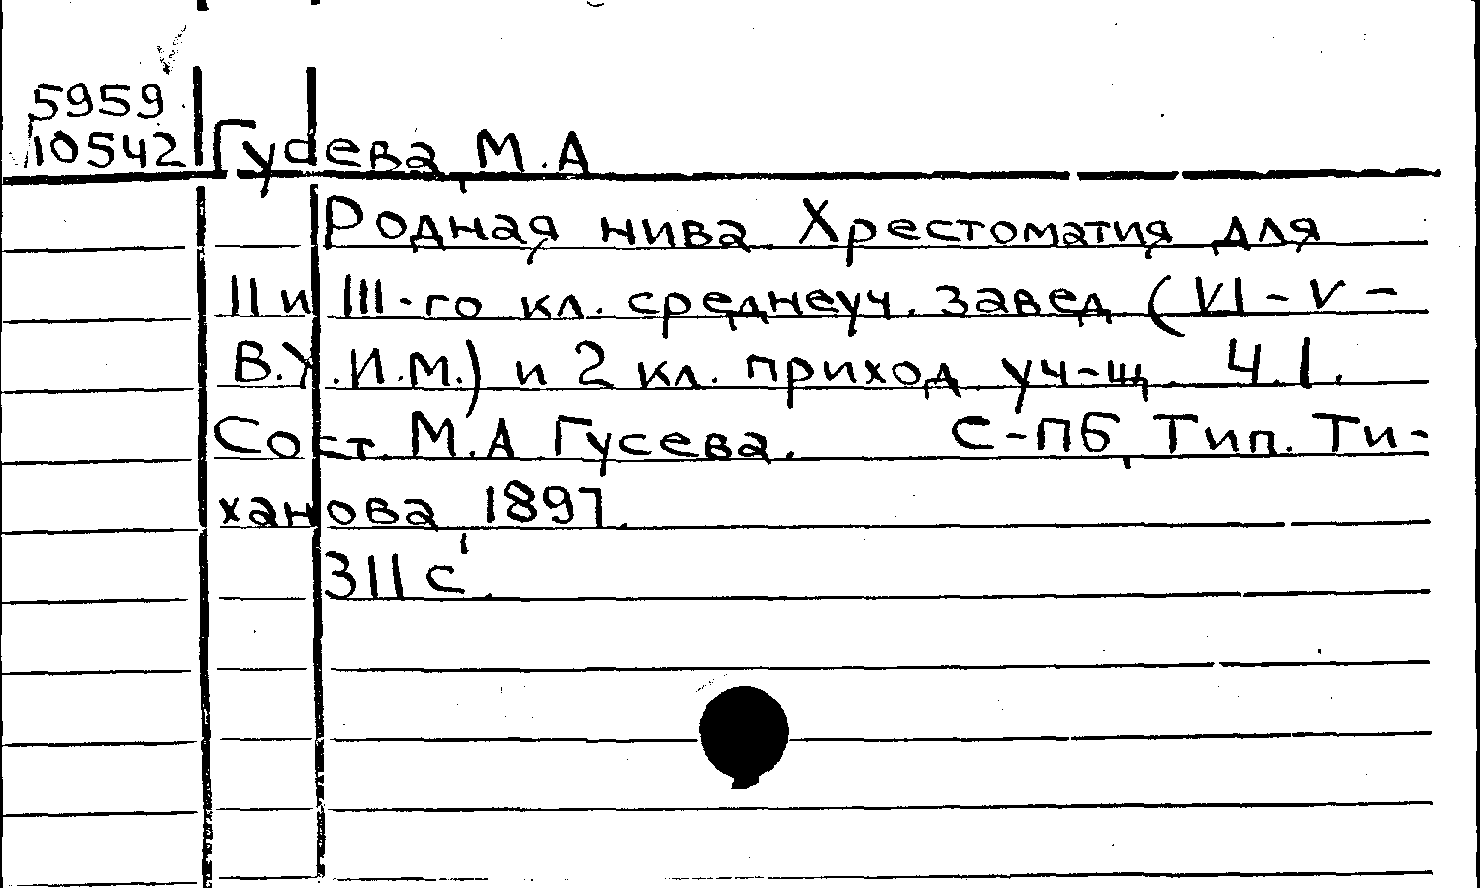 5959
10542 Гусева, М.А
Родная нива. Хрестоматия для
II и III-го кл. среднеуч. завед (VI-V-
В.У.И.М.) и 2 кл. приход. уч-щ. Ч.I.
Сост. М.А Гусева. С-ПБ, Тип. Ти-
ханова, 1897.
311 с.